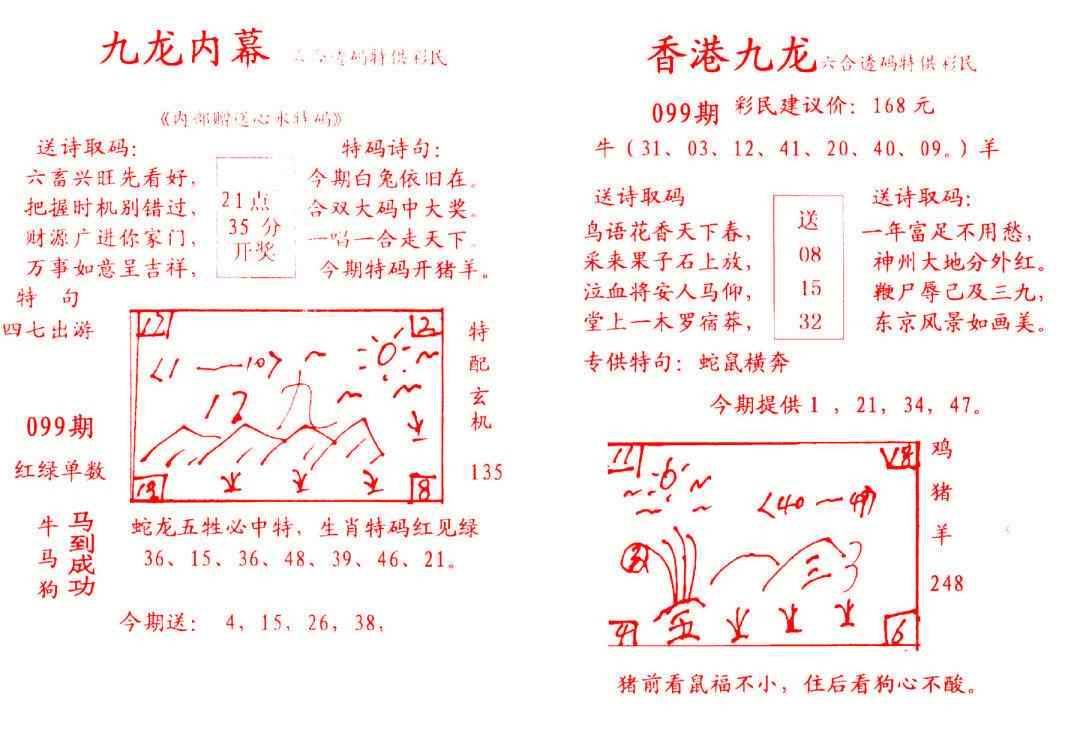 九龙内幕 六合透码特供彩民
《内部赠送心水特码》
送诗取码:
六畜兴旺先看好,
把握时机别错过,
财源广进你家门,
万事如意呈吉祥,
21点
35 分
开奖
特码诗句:
今期白兔依旧在。
合双大码中大奖。
一唱一合走天下。
今期特码开猪羊。
特 句
四七出游
099期
红绿单数
12
2
<1 —10>
12
九
19
8
特配玄机
135
牛马狗
马到成功
蛇龙五牲必中特, 生肖特码红见绿
36、15、36、48、39、46、21。
今期送: 4, 15, 26, 38,
香港九龙 六合透码特供彩民
099期 彩民建议价: 168 元
牛 (31、03、12、41、20、40、09。) 羊
送诗取码
鸟语花香天下春,
采来果子石上放,
泣血将安人马仰,
堂上一木罗宿莽,
送
08
15
32
送诗取码:
一年富足不用愁,
神州大地分外红。
鞭尸辱己及三九,
东京风景如画美。
专供特句: 蛇鼠横奔
今期提供 1 , 21, 34, 47。
11
6
<40 — 49>
三
3
41
6
鸡
猪
羊
248
猪前看鼠福不小, 住后看狗心不酸。